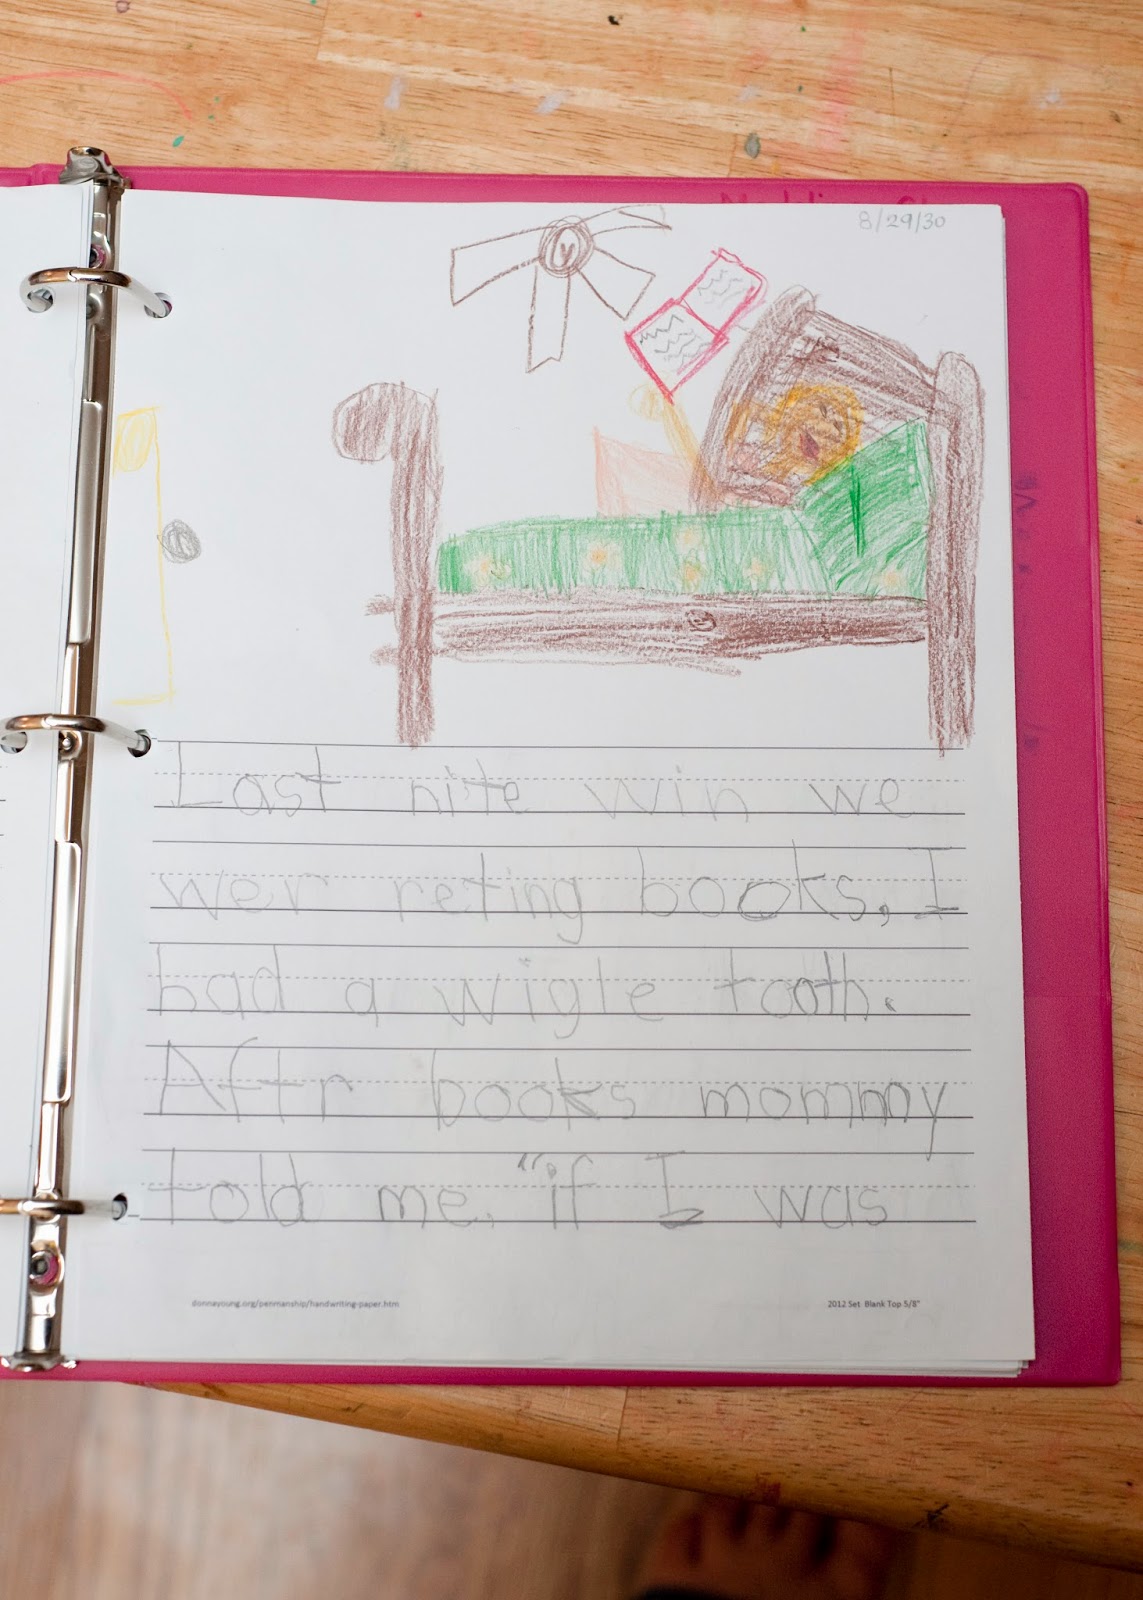 8/29/30
Last nite win we
wer reting books, I
had a wigle tooth.
Aftr books mommy
told me, "if I was
donnayoung.org/penmanship/handwriting-paper.htm
2012 Set Blank Top 5/8"